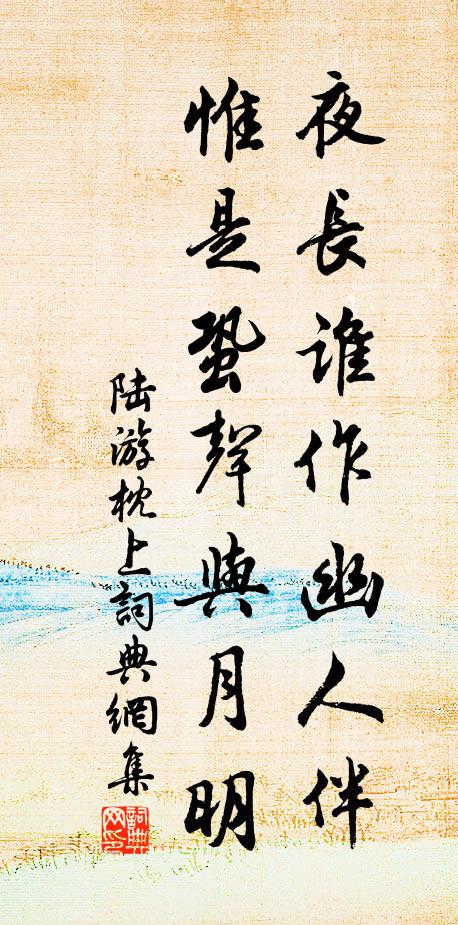 夜長誰作幽人伴
惟是蛩聲與月明
陸游枕上詞典網集
詞典
网印